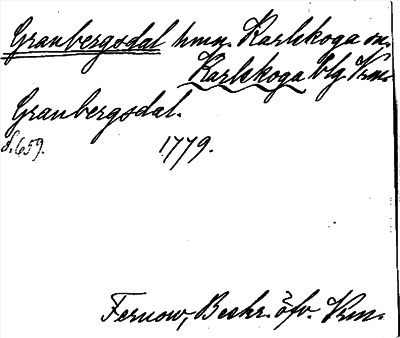 Granbergsdal hmn. Karlskoga sn.
Karlskoga blg Vrm.
Granbergsdal.
S. 659. 1779.
Fernow, Beskr. öfv. Vrm.